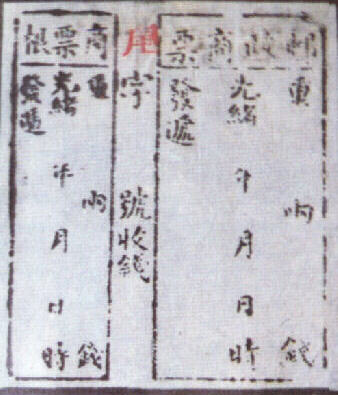 郵政商票
重 兩 錢
光緒 年 月 日 時
發遞
尾字 號收錢
商票根
重 兩 錢
光緒 年 月 日 時
發遞